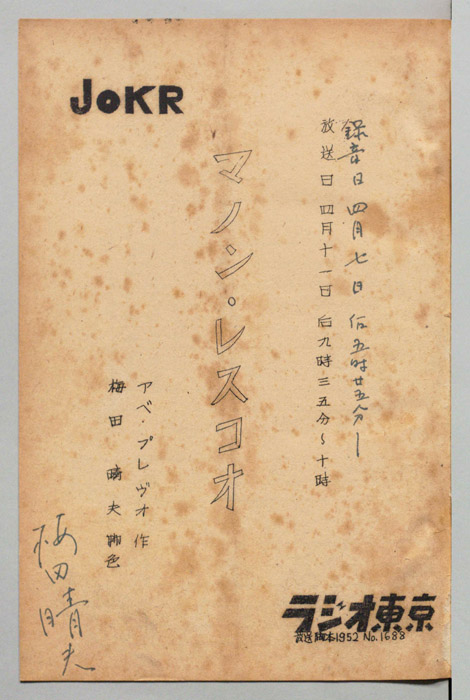 JOKR
録音日 四月七日 后五時廿五分〜
放送日 四月十一日 后九時三五分〜十時
マノン・レスコオ
アベ・プレヴオ 作
梅田晴夫 脚色
梅田晴夫
ラジオ東京
放送脚本1952 No.1688